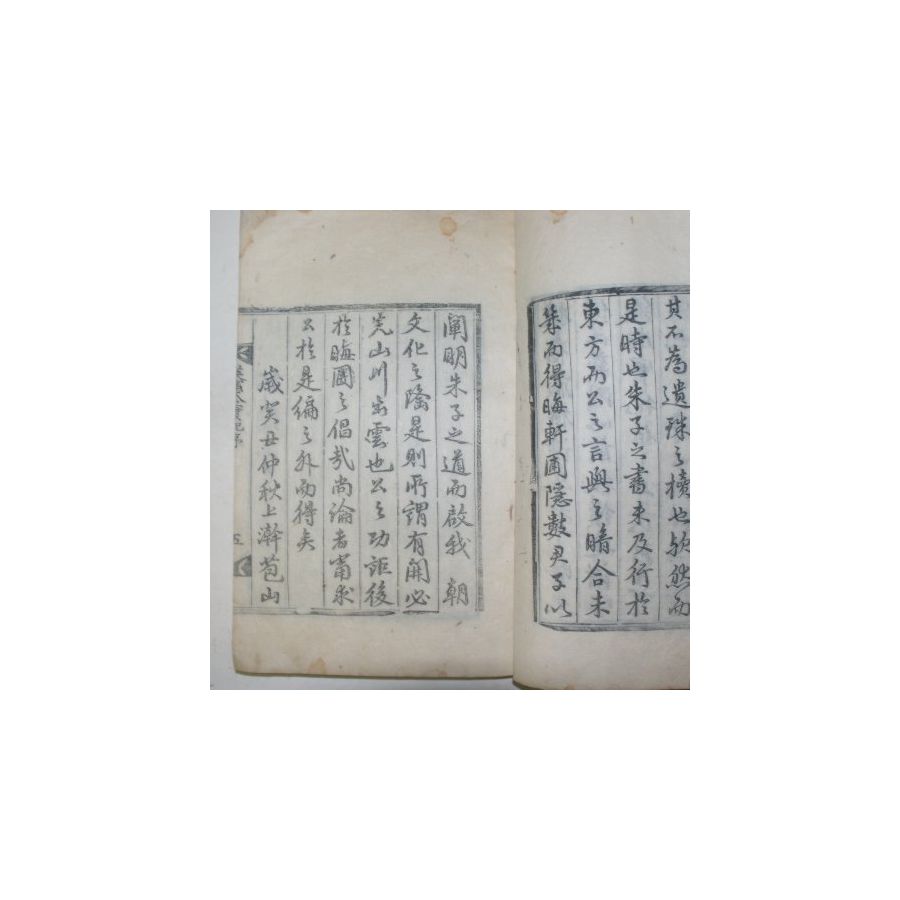 其不爲遺珠之櫝也歟然而
是時也朱子之書未及行於
東方而公之言與之暗合未
幾而得晦軒圃隱數君子以
闡明朱子之道而啟我 朝
文化之隆是則所謂有開必
先山川出雲也公之功詎後
於晦圃之倡哉尚論者當求
公於是編之外而得矣
歲癸丑仲秋上澣苞山
五